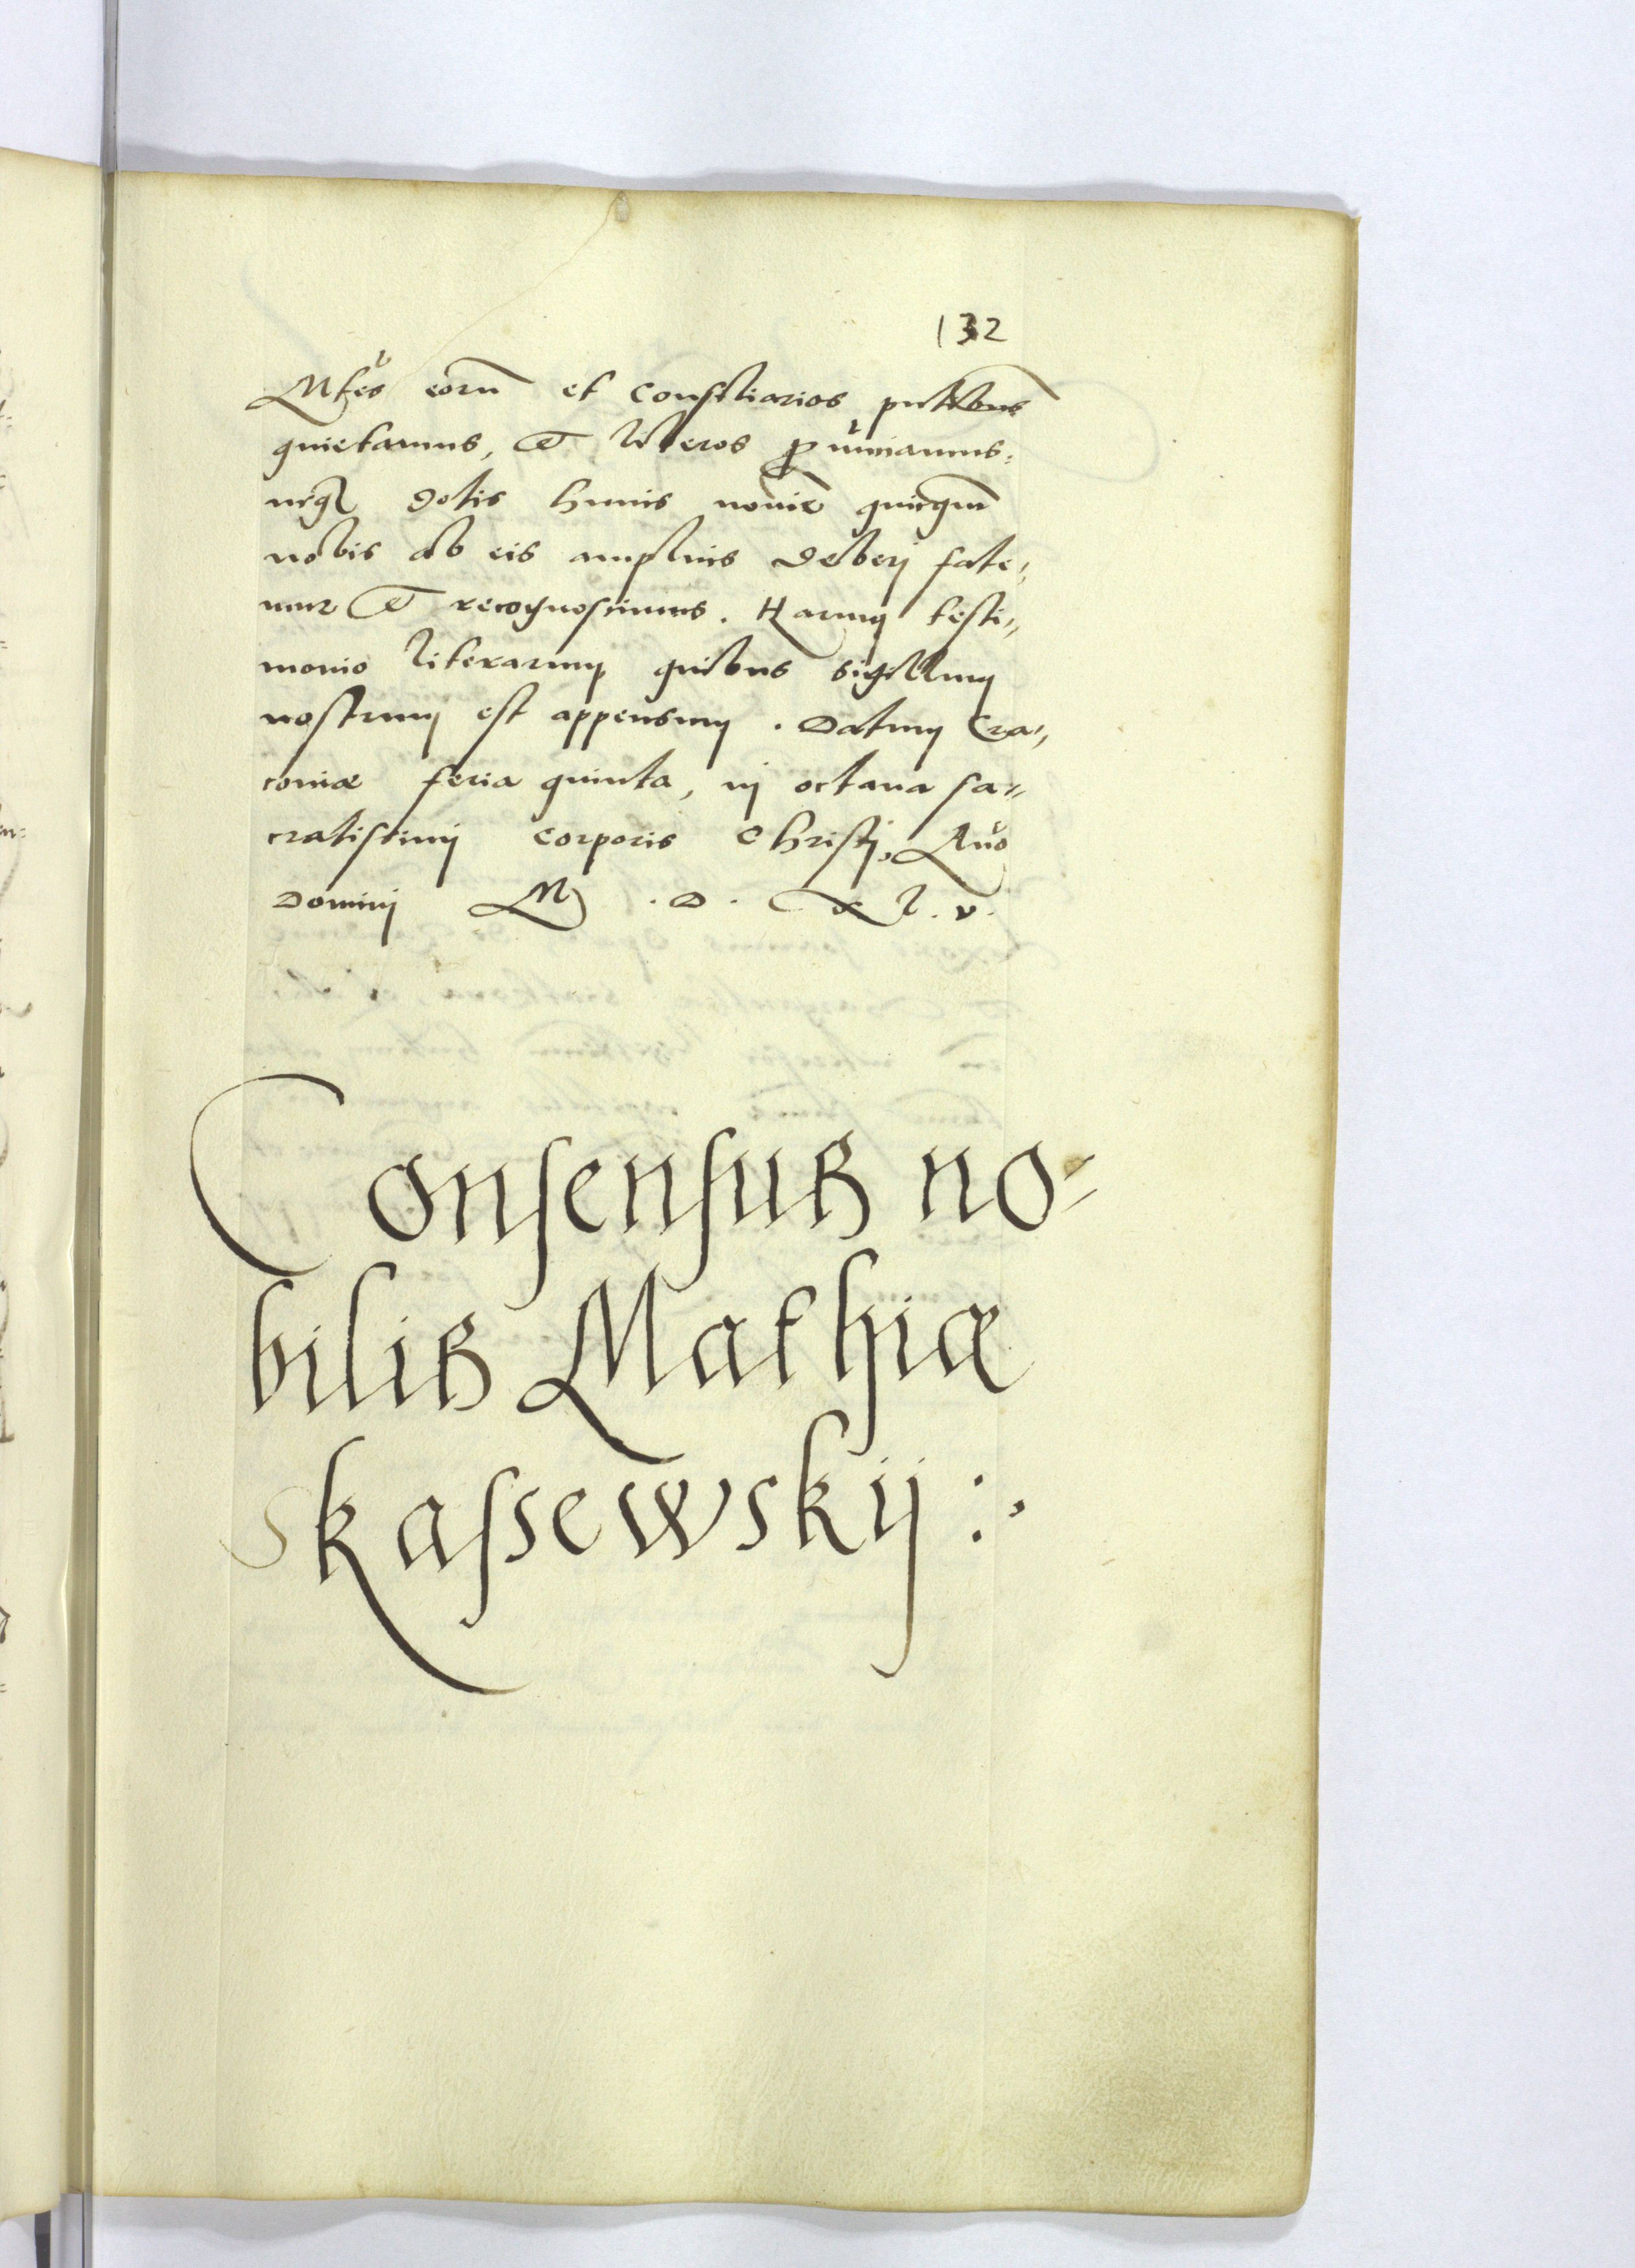 132
Mtes eoru et Consiliarios pntibus
quietamus, et liberos pronunciamus:
neq dotis huius noie quicqm
nobis ab eis amplius deberj fate¬
mur et recognoscimus. Harum testi¬
monio literarum quibus sigillum
nostrum est appensum. Datum Cra¬
coviæ feria quinta, in octava sa¬
cratissimi Corporis Christi, Ano
Dominj M. D. XL. V.
Consensus no¬
bilis Mathiæ
Skassewskij :.